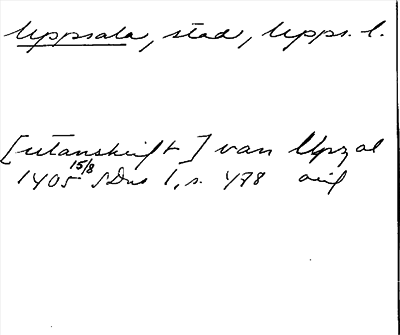 Uppsala, stad, Upps. l.
[utanskrift] van Upzal
1405 15/8 SDns 1, s. 478 avig